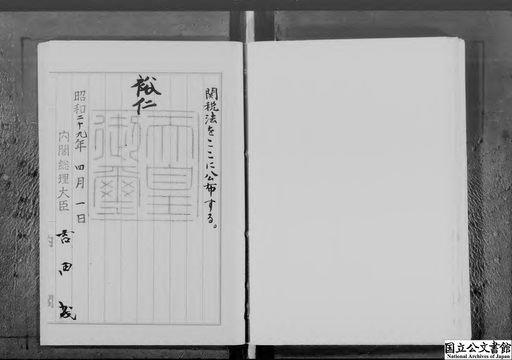 関税法をここに公布する。
裕仁
天皇
御璽
昭和二十九年四月一日
内閣総理大臣 吉田茂
内閣
国立公文書館
National Archives of Japan